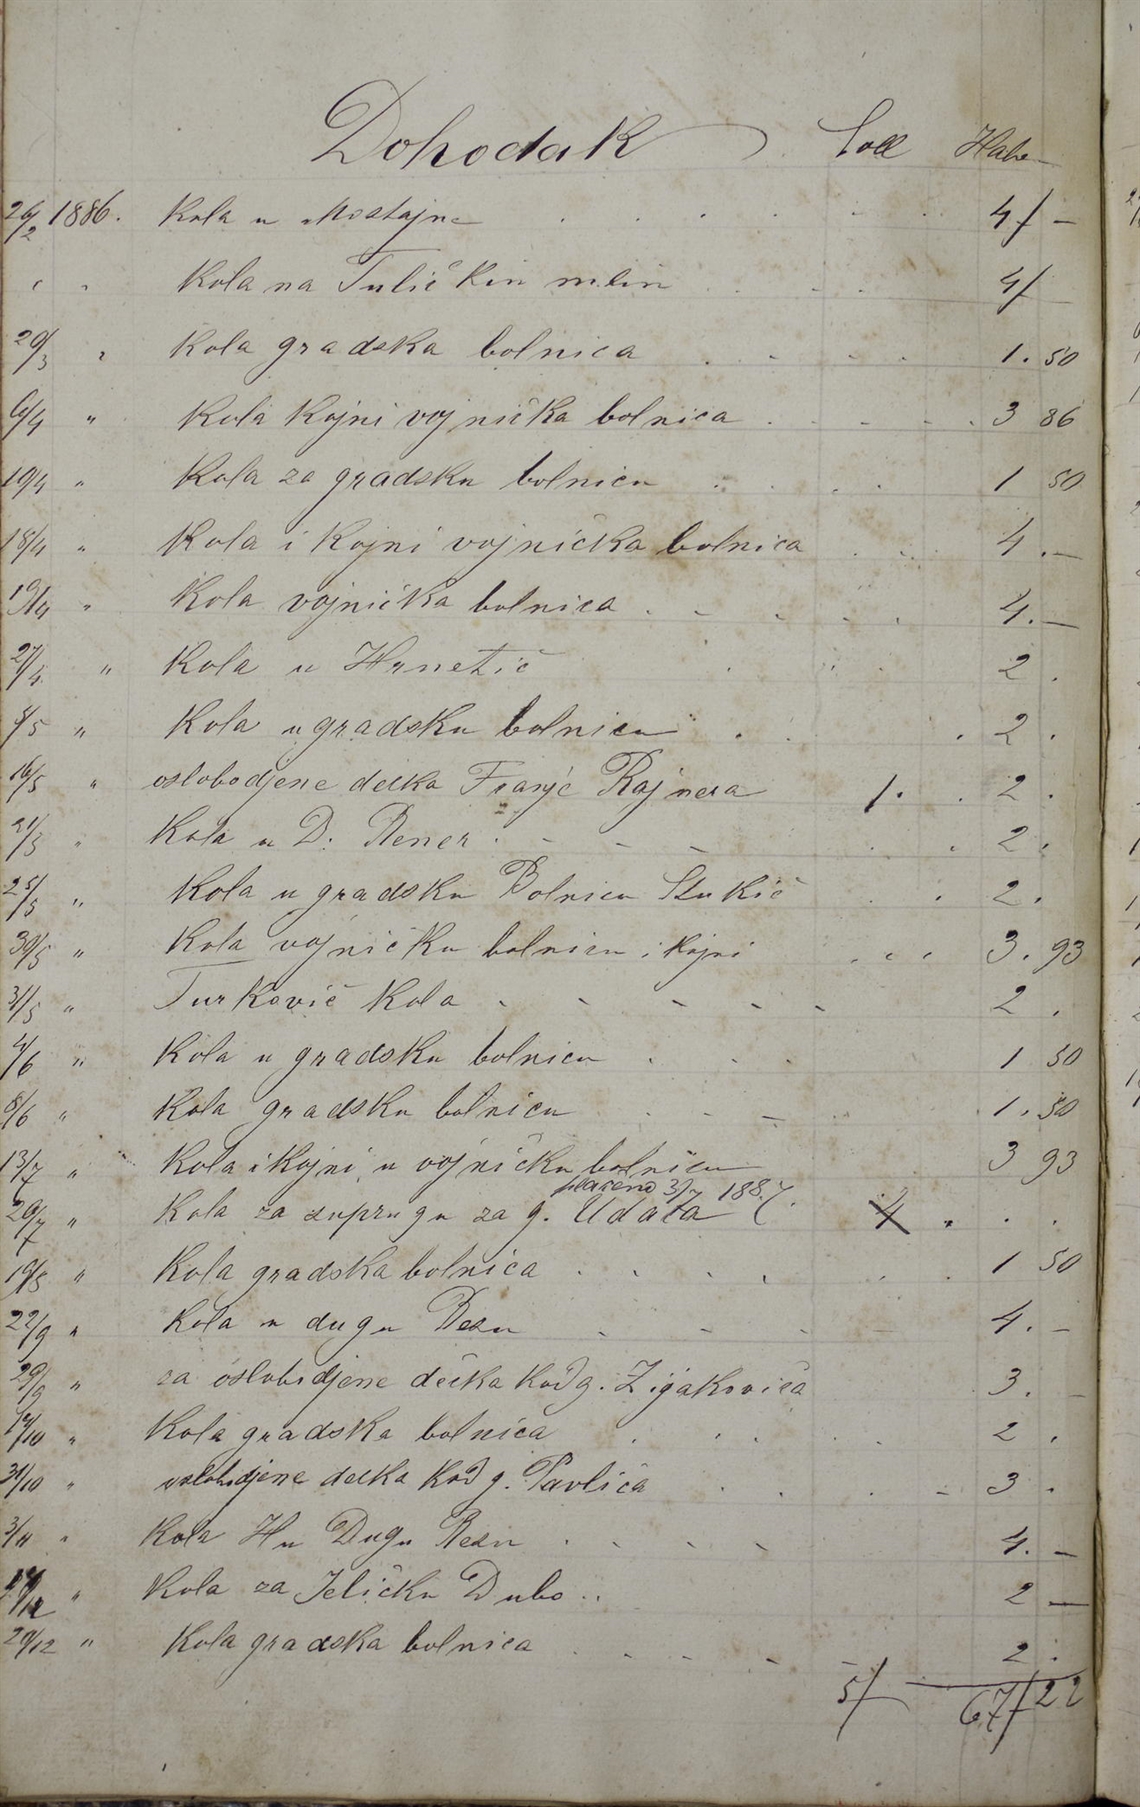 Dohodak Soll Haben
26/2 1886. Kola u Mostajne 4/ —
" " Kola na Tuličkin mlin 4/ —
20/3 " Kola gradska bolnica 1. 50
6/4 " Kola Kojni vojnička bolnica 3 86
10/4 " Kola za gradsku bolnicu 1 50
18/4 " Kola i Kojni vojnička bolnica 4. —
19/4 " Kola vojnička bolnica 4. —
27/4 " Kola u Hrnetić 2 .
8/5 " Kola u gradsku bolnicu 2 .
16/5 " oslobodjene dečka Franje Rajnera 1. 2 .
21/5 " Kola u D. Rener 2 .
25/5 " Kola u gradsku Bolnicu Stukić 2 .
30/5 " Kola vojničku bolnicu i Kojni 3. 93
31/5 " Turković Kola 2 .
4/6 " Kola u gradsku bolnicu 1 50
8/6 " Kola gradsku bolnicu 1. 50
13/7 " Kola i Kojni u vojničku bolnicu 3 93
plaćeno 3/7 1887.
20/7 " Kola za suprugu za g. Udala 4 . . .
19/8 " Kola gradska bolnica 1 50
22/9 " Kola u dugu Resu 4. —
29/9 " za oslobidjene dečka Kod g. Zigakovića 3. —
14/10 " Kola gradska bolnica 2 .
31/10 " oslobidjene dečka Kod g. Pavlića 3 .
3/11 " Kola Hu Dugu Resu 4. —
Kola za Jeličku Dubo .. 2 —
29/12 " Kola gradska bolnica 2 .
5/ — 67/22